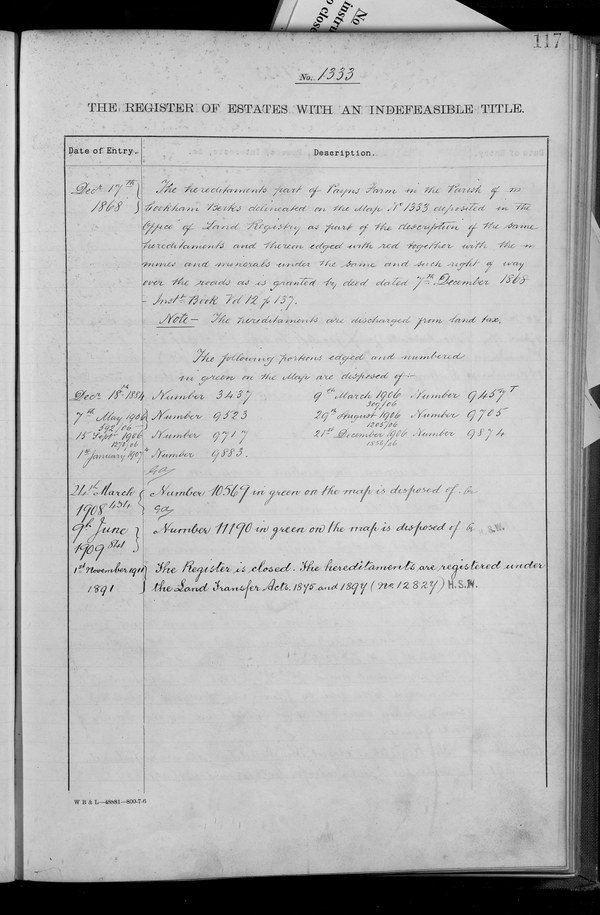 No
instru
o close
117
No. 1333
THE REGISTER OF ESTATES WITH AN INDEFEASIBLE TITLE.
Date of Entry. Description.
Decr 17th 1868 The hereditaments part of Payns Farm in the Parish of
Cookham Berks delineated on the Map No 1333 deposited in the
Office of Land Registry as part of the description of the same
hereditaments and therein edged with red together with the
mines and minerals under the same and such right of way
over the roads as is granted by deed dated 7th December 1868
- Inst. Book Vol 12 p 137.
Note - The hereditaments are discharged from land tax.
The following portions edged and numbered
in green on the Map are disposed of -
Decr 18th 1884 Number 3437 9th March 1906 Number 9457
300/06
7th May 1906 Number 9523 29th August 1906 Number 9705
592/06 1205/06
15 Sept 1906 Number 9717 21st December 1906 Number 9874
1271/06 1836/06
1st January 1907 Number 9883.
24th March 1908 434 Number 10569 in green on the map is disposed of.
9th June 1909 841 Number 11190 in green on the map is disposed of
1st November 1911 The Register is closed. The hereditaments are registered under
1891 the Land Transfer Acts. 1875 and 1897 (No 12827) H.S.W.
W B & L—46881—600-7-6